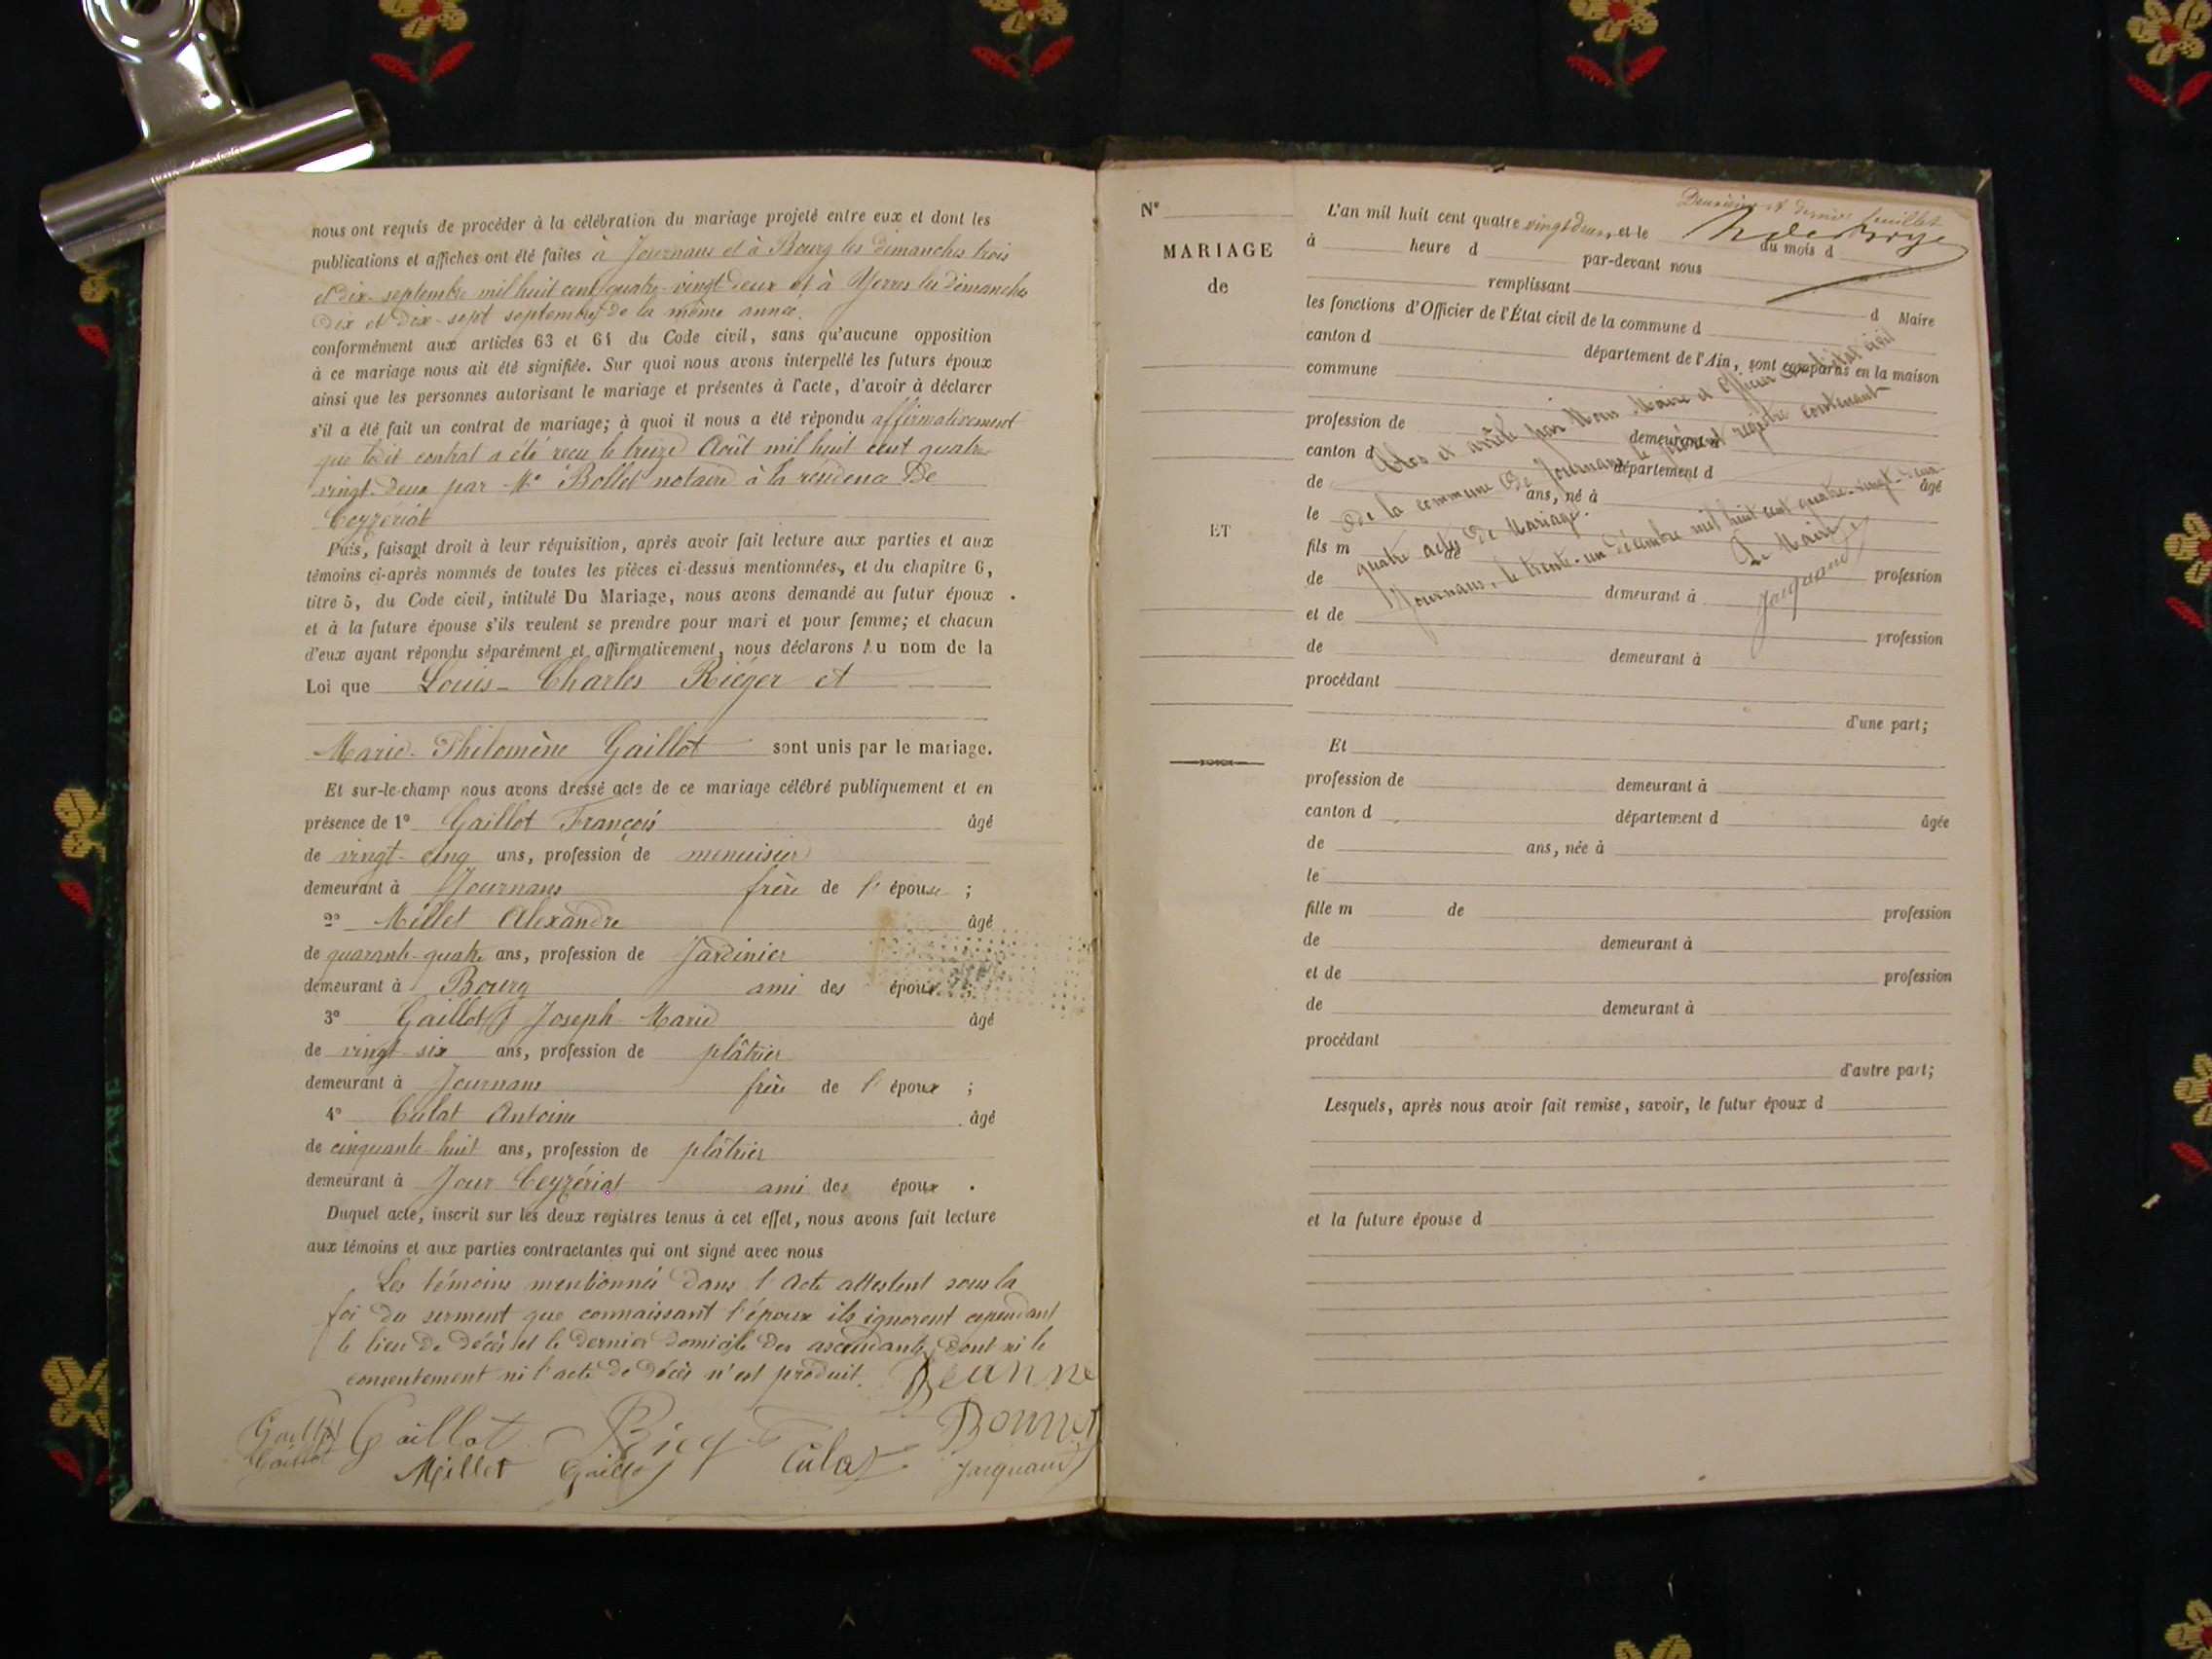 nous ont requis de procéder à la célébration du mariage projeté entre eux et dont les
publications et affiches ont été faites à Journans et à Bourg les dimanches trois
et dix septembre mil huit cent quatre-vingt deux et à Yerres les dimanches
Dix et Dix-sept septembre de la même année.
conformément aux articles 63 et 64 du Code civil, sans qu'aucune opposition
à ce mariage nous ait été signifiée. Sur quoi nous avons interpellé les futurs époux
ainsi que les personnes autorisant le mariage et présentes à l'acte, d'avoir à déclarer
s'il a été fait un contrat de mariage; à quoi il nous a été répondu affirmativement
que le dit contrat a été reçu le treize Août mil huit cent quatre
vingt-Deux par Me Bollet notaire à la résidence De
Ceyzériat
Puis, faisant droit à leur réquisition, après avoir fait lecture aux parties et aux
témoins ci-après nommés de toutes les pièces ci-dessus mentionnées, et du chapitre 6,
titre 5, du Code civil, intitulé Du Mariage, nous avons demandé au futur époux
et à la future épouse s'ils veulent se prendre pour mari et pour femme; et chacun
d'eux ayant répondu séparément et affirmativement, nous déclarons Au nom de la
Loi que Louis-Charles Riéger et
Marie-Philomène Gaillot sont unis par le mariage.
Et sur-le-champ nous avons dressé acte de ce mariage célébré publiquement et en
présence de 1° Gaillot François âgé
de vingt-cinq ans, profession de menuisier
demeurant à Journans frère de l'épouse ;
2° Millet Alexandre âgé
de quarante-quatre ans, profession de Jardinier
demeurant à Bourg ami des époux ;
3° Gaillot Joseph Marie âgé
de vingt six ans, profession de plâtrier
demeurant à Journans frère de l'époux ;
4° Culat Antoine âgé
de cinquante huit ans, profession de plâtrier
demeurant à Jour Ceyzériat ami des époux .
Duquel acte, inscrit sur les deux registres tenus à cet effet, nous avons fait lecture
aux témoins et aux parties contractantes qui ont signé avec nous
Les témoins mentionnés dans l'Acte attestent sous la
foi du serment que connaissant l'époux ils ignorent cependant
le lieu De décès et le Dernier Domicile Des ascendants Dont ni le
consentement ni l'acte De Décès n'est produit. Jeanne
Gaillot Gaillot Riéger Bonnet
Gaillot Millet Gaillot Culat Jacquand
Deuxième et dernier feuillet
N° L'an mil huit cent quatre vingt deux, et le du mois d
MARIAGE
de
à heure d par-devant nous
remplissant
d Maire
les fonctions d'Officier de l'État civil de la commune d
canton d département de l'Ain, sont comparus en la maison
commune
profession de demeurant à
canton d département d âgé
de ans, né à
le
ET
fils m de profession
de demeurant à
et de profession
de demeurant à
procédant
d'une part;
Clos et arrêté par Nous Maire et Officier de l'état civil
de la commune De Journans le présent registre contenant
quatre actes De Mariage.
Journans, le trente-un décembre mil huit cent quatre-vingt-deux
Le Maire
Jacquand
Et
profession de demeurant à
canton d département d âgée
de ans, née à
le
fille m de profession
de demeurant à
et de profession
de demeurant à
procédant
d'autre part;
Lesquels, après nous avoir fait remise, savoir, le futur époux d
et la future épouse d